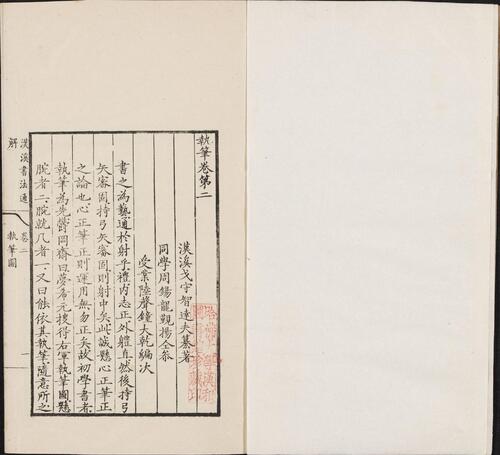 執筆卷第二
漢溪戈守智達夫纂著
同學周錫龍覲揚仝叅
受業陸聲鐘大乾編次
書之為藝通於射乎禮内志正外體直然後持弓
矢審固持弓矢審固則射中矣此誠懸心正筆正
之論也心正筆正則運用無勿正矣故初學書者
執筆為先鬱岡齋曰吳希元授得右軍執筆圖懸
腕者二腕就几者一又曰蝕依其執筆隨意所之
漢溪書法通解 卷二 執筆圖 一